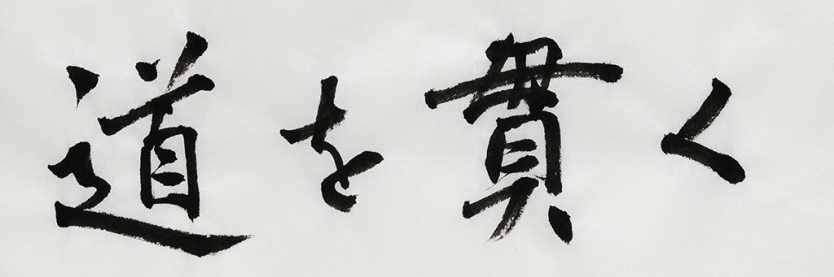 道を貫く